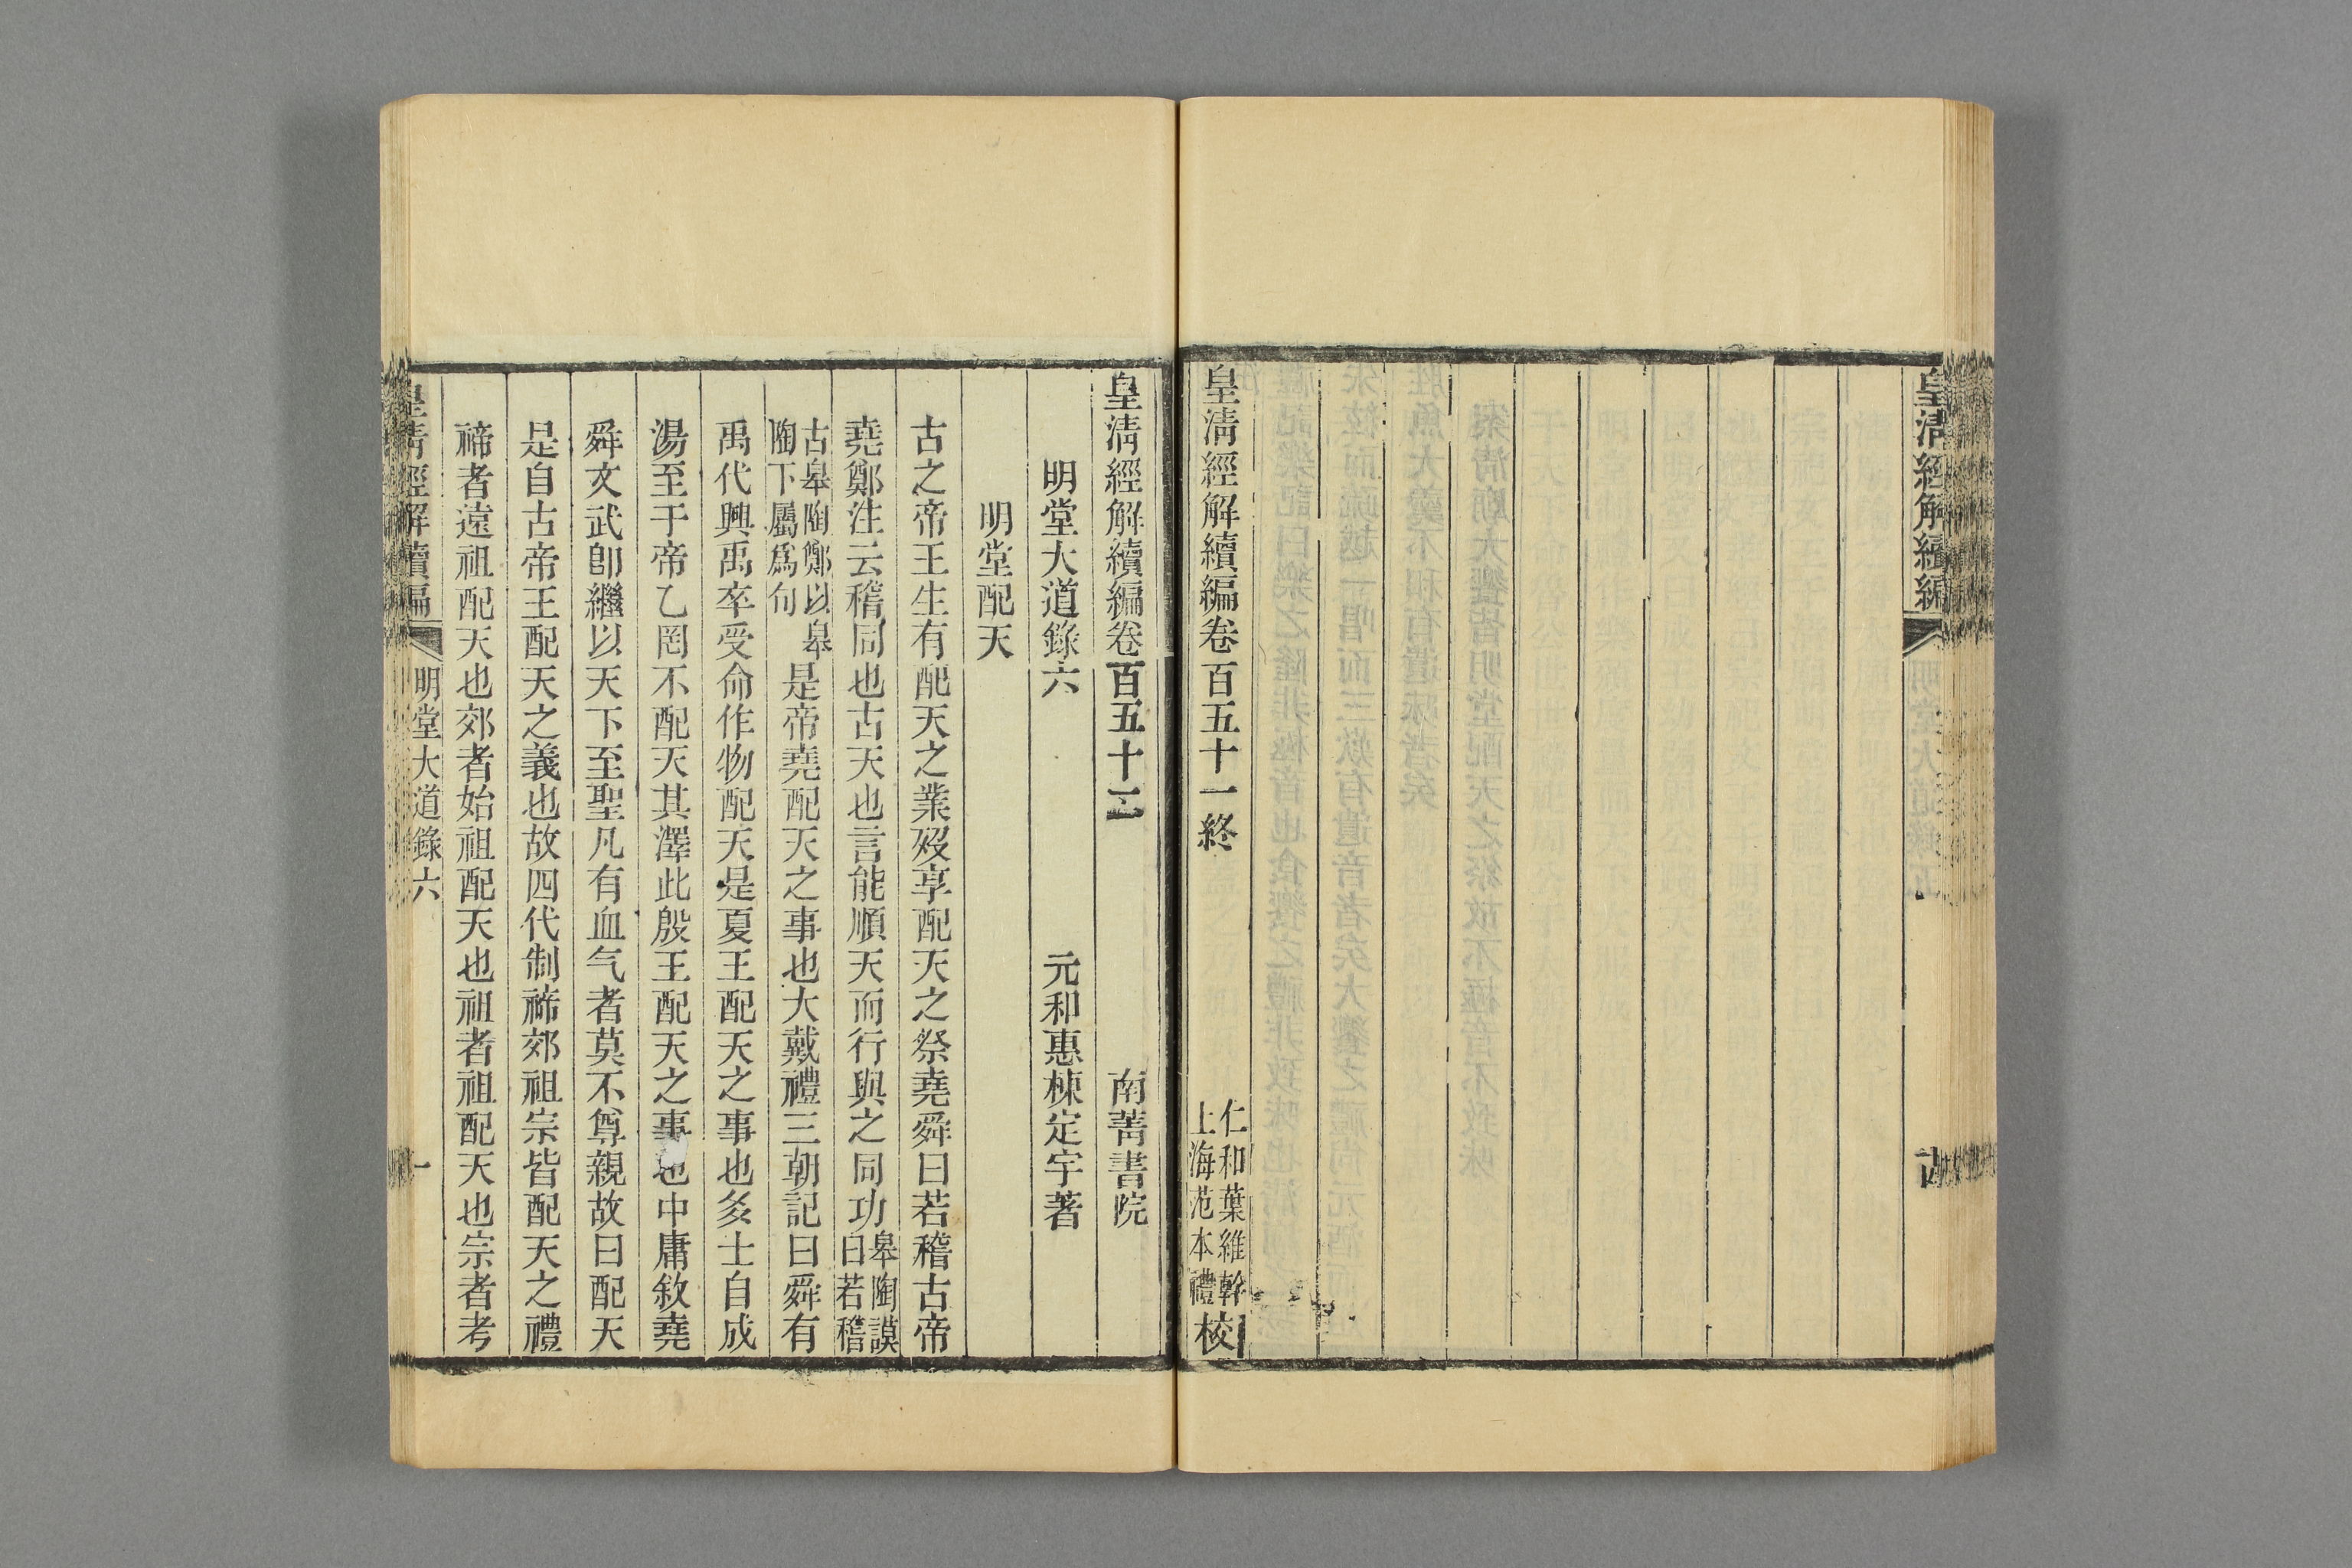 皇清經解續編
古
皇清經解續編卷百五十一終
仁和葉維幹
上海范本禮
校
皇清經解續編卷百五十二
南菁書院
明堂大道錄六
元和惠棟定宇著
明堂配天
古之帝王生有配天之業歿享配天之祭堯舜曰若稽古帝
堯鄭注云稽同也古天也言能順天而行與之同功皋陶謨曰若稽
古皋陶鄭以皋陶下屬爲句是帝堯配天之事也大戴禮三朝記曰舜有
禹代興禹卒受命作物配天是夏王配天之事也多士自成
湯至于帝乙罔不配天其澤此殷王配天之事也中庸敘堯
舜文武卽繼以天下至聖凡有血气者莫不尊親故曰配天
是自古帝王配天之義也故四代制禘郊祖宗皆配天之禮
禘者遠祖配天也郊者始祖配天也祖者祖配天也宗者考
皇清經解續編
明堂大道錄六
一